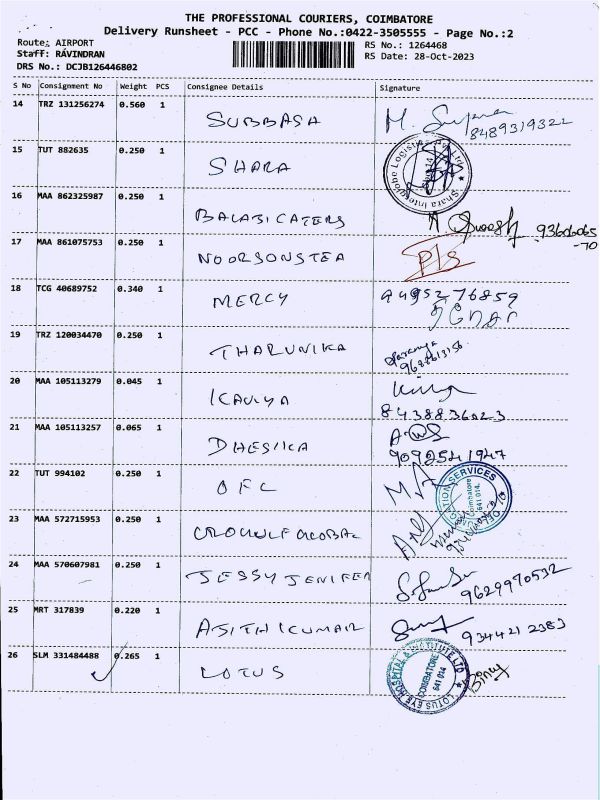 THE PROFESSIONAL COURIERS, COIMBATORE
Delivery Runsheet - PCC - Phone No.:0422-3505555 - Page No.:2
Route: AIRPORT
RS No.: 1264468
Staff: RAVINDRAN
RS Date: 28-Oct-2023
DRS No.: DCJB126446802
S No Consignment No Weight PCS Consignee Details Signature
14 TRZ 131256274 0.560 1 SUBBASA M.
8489319322
15 TUT 882635 0.250 1 SHARA
Shara Interglobe Logistics Pvt Ltd
16 MAA 862325987 0.250 1 BALAJI CATERS
17 MAA 861075753 0.250 1 NOORSONSTEA
18 TCG 40689752 0.340 1 MERCY
19 TRZ 120034470 0.250 1 THARUNIKA
9688613156
20 MAA 105113279 0.045 1 KAVIYA
8438836023
21 MAA 105113257 0.065 1 DHESIKA
9092541947
22 TUT 994102 0.250 1 OFC
Coimbatore
641 014.
23 MAA 572715953 0.250 1
24 MAA 570607981 0.250 1 JESSY JENIFER
9629970532
25 MRT 317839 0.220 1 ASITHKUMAR
9344212383
26 SLM 331484488 0.265 1 LOTUS
LOTUS EYE HOSPITAL & INSTITUTE LTD
COIMBATORE
641 014